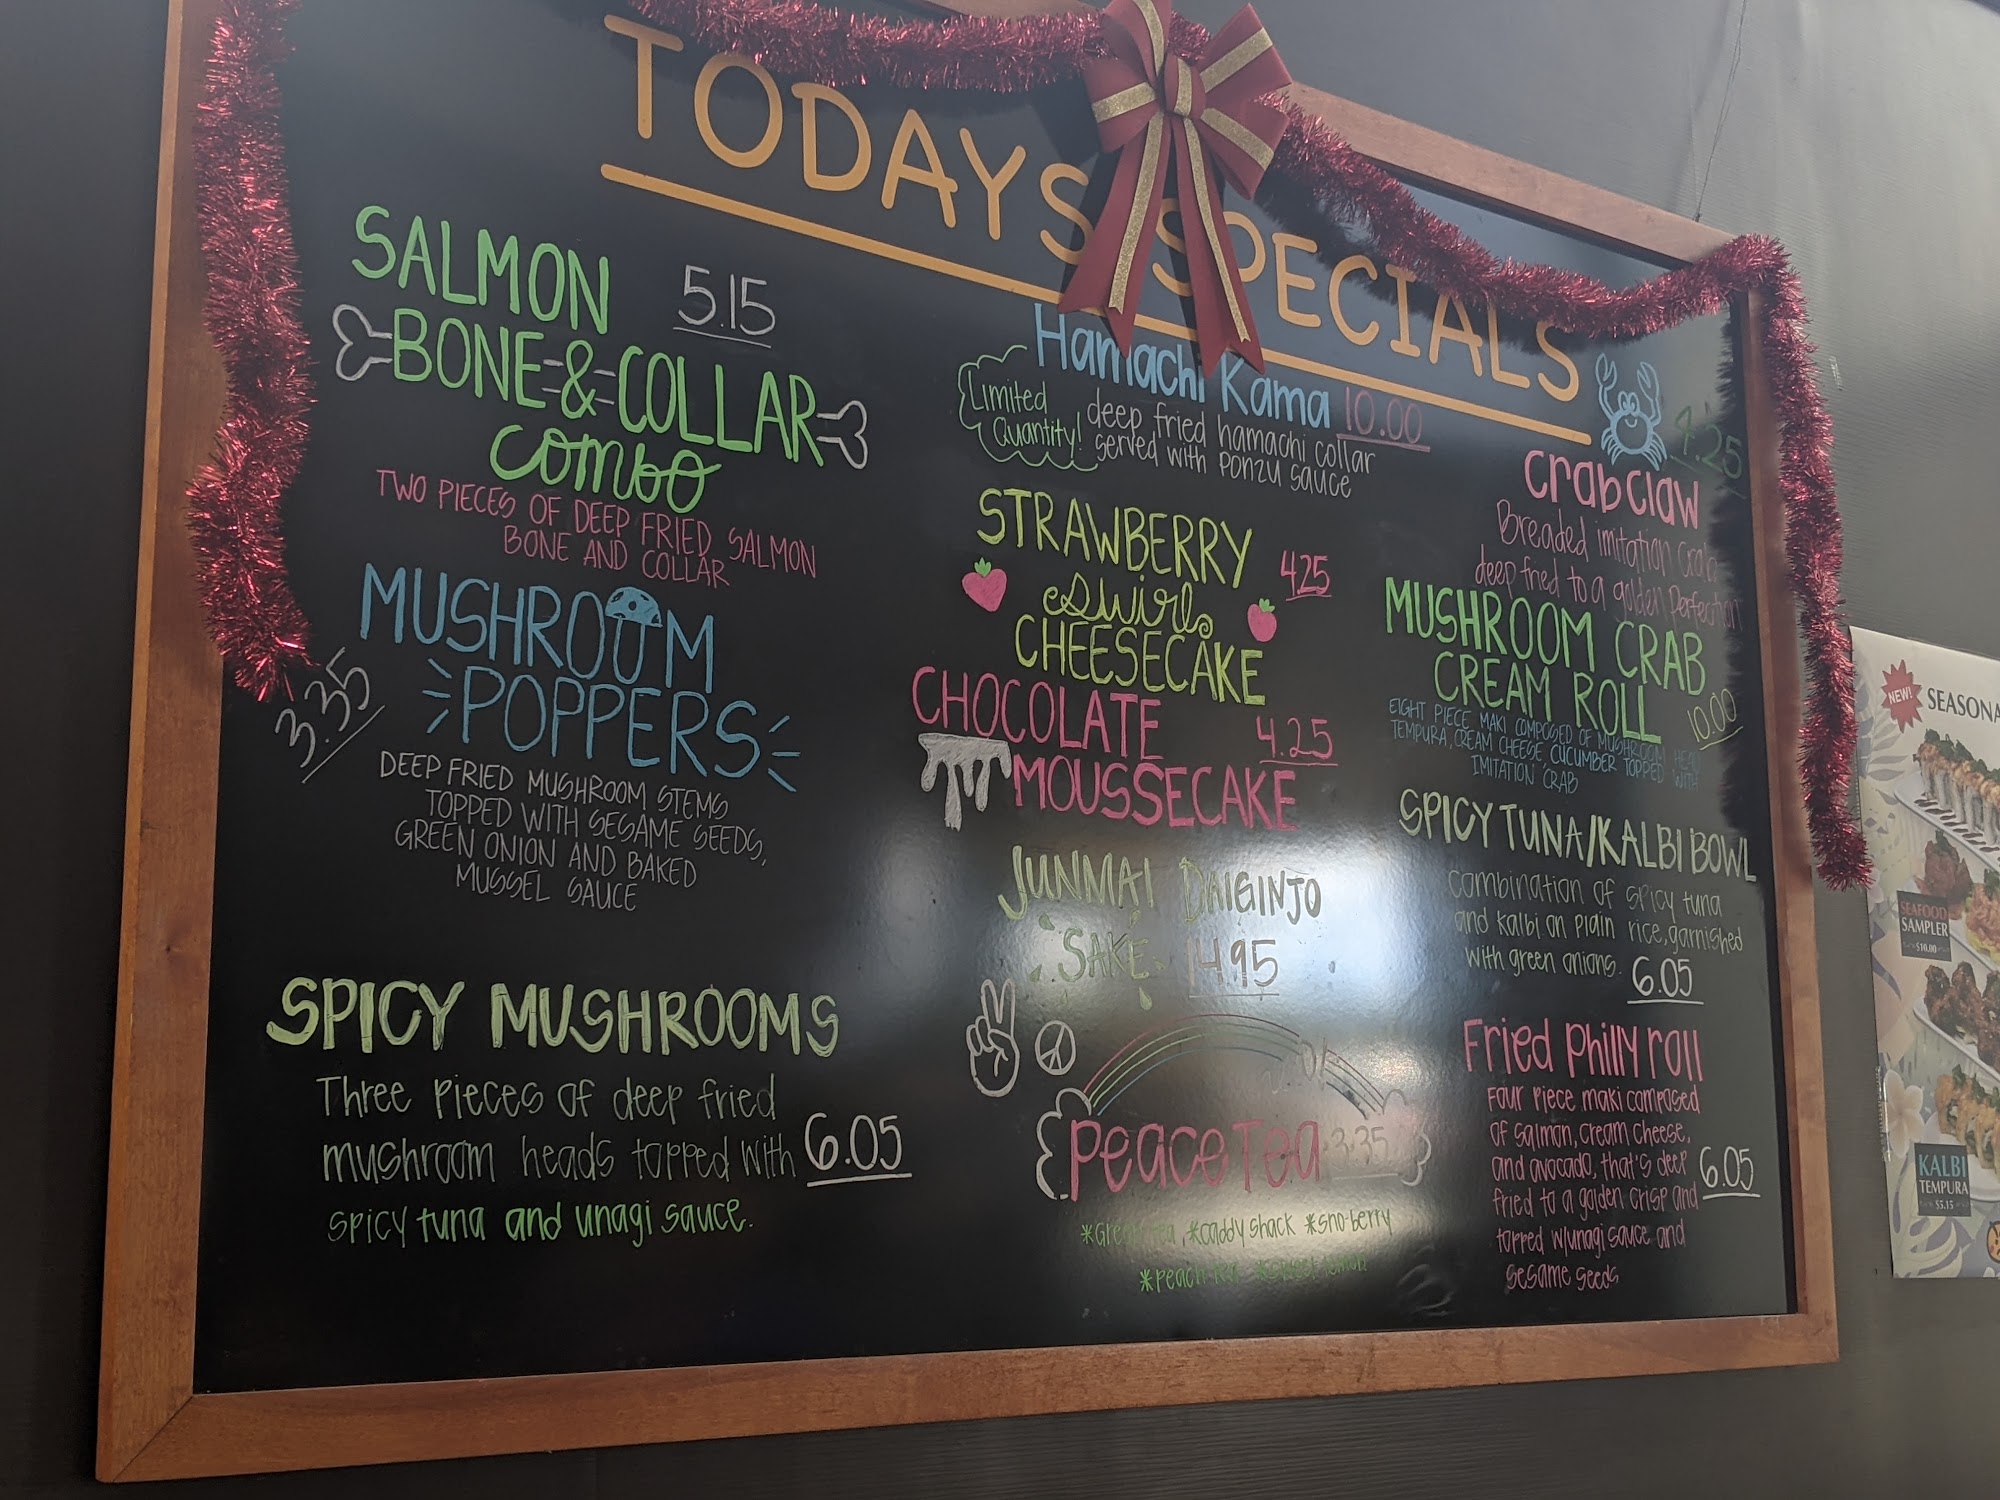 TODAYS SPECIALS
SALMON
5.15
BONE & COLLAR
combo
TWO PIECES OF DEEP FRIED SALMON
BONE AND COLLAR
MUSHROOM
POPPERS
3.35
DEEP FRIED MUSHROOM STEMS
TOPPED WITH SESAME SEEDS,
GREEN ONION AND BAKED
MUSSEL SAUCE
SPICY MUSHROOMS
Three pieces of deep fried
mushroom heads topped with
spicy tuna and unagi sauce.
6.05
Hamachi Kama 10.00
Limited
Quantity!
deep fried hamachi collar
served with ponzu sauce
STRAWBERRY
4.25
swirl
CHEESECAKE
CHOCOLATE
4.25
MOUSSECAKE
JUNMAI DAIGINJO
SAKE 14.95
Peace Tea 3.35
*Green tea, *caddy shack *sno-berry
*peach tea
4.25
Crab Claw
Breaded imitation crab
deep fried to a golden perfection
MUSHROOM CRAB
CREAM ROLL
10.00
EIGHT PIECE MAKI COMPOSED OF MUSHROOM HEAD
TEMPURA, CREAM CHEESE, CUCUMBER TOPPED WITH
IMITATION CRAB
SPICY TUNA/KALBI BOWL
combination of spicy tuna
and kalbi on plain rice, garnished
with green onions.
6.05
Fried Philly roll
Four piece maki composed
of salmon, cream cheese,
and avocado, that's deep
fried to a golden crisp and
topped w/unagi sauce and
sesame seeds
6.05
NEW!
SEASONA
SEAFOOD
SAMPLER
$10.00
KALBI
TEMPURA
$5.15